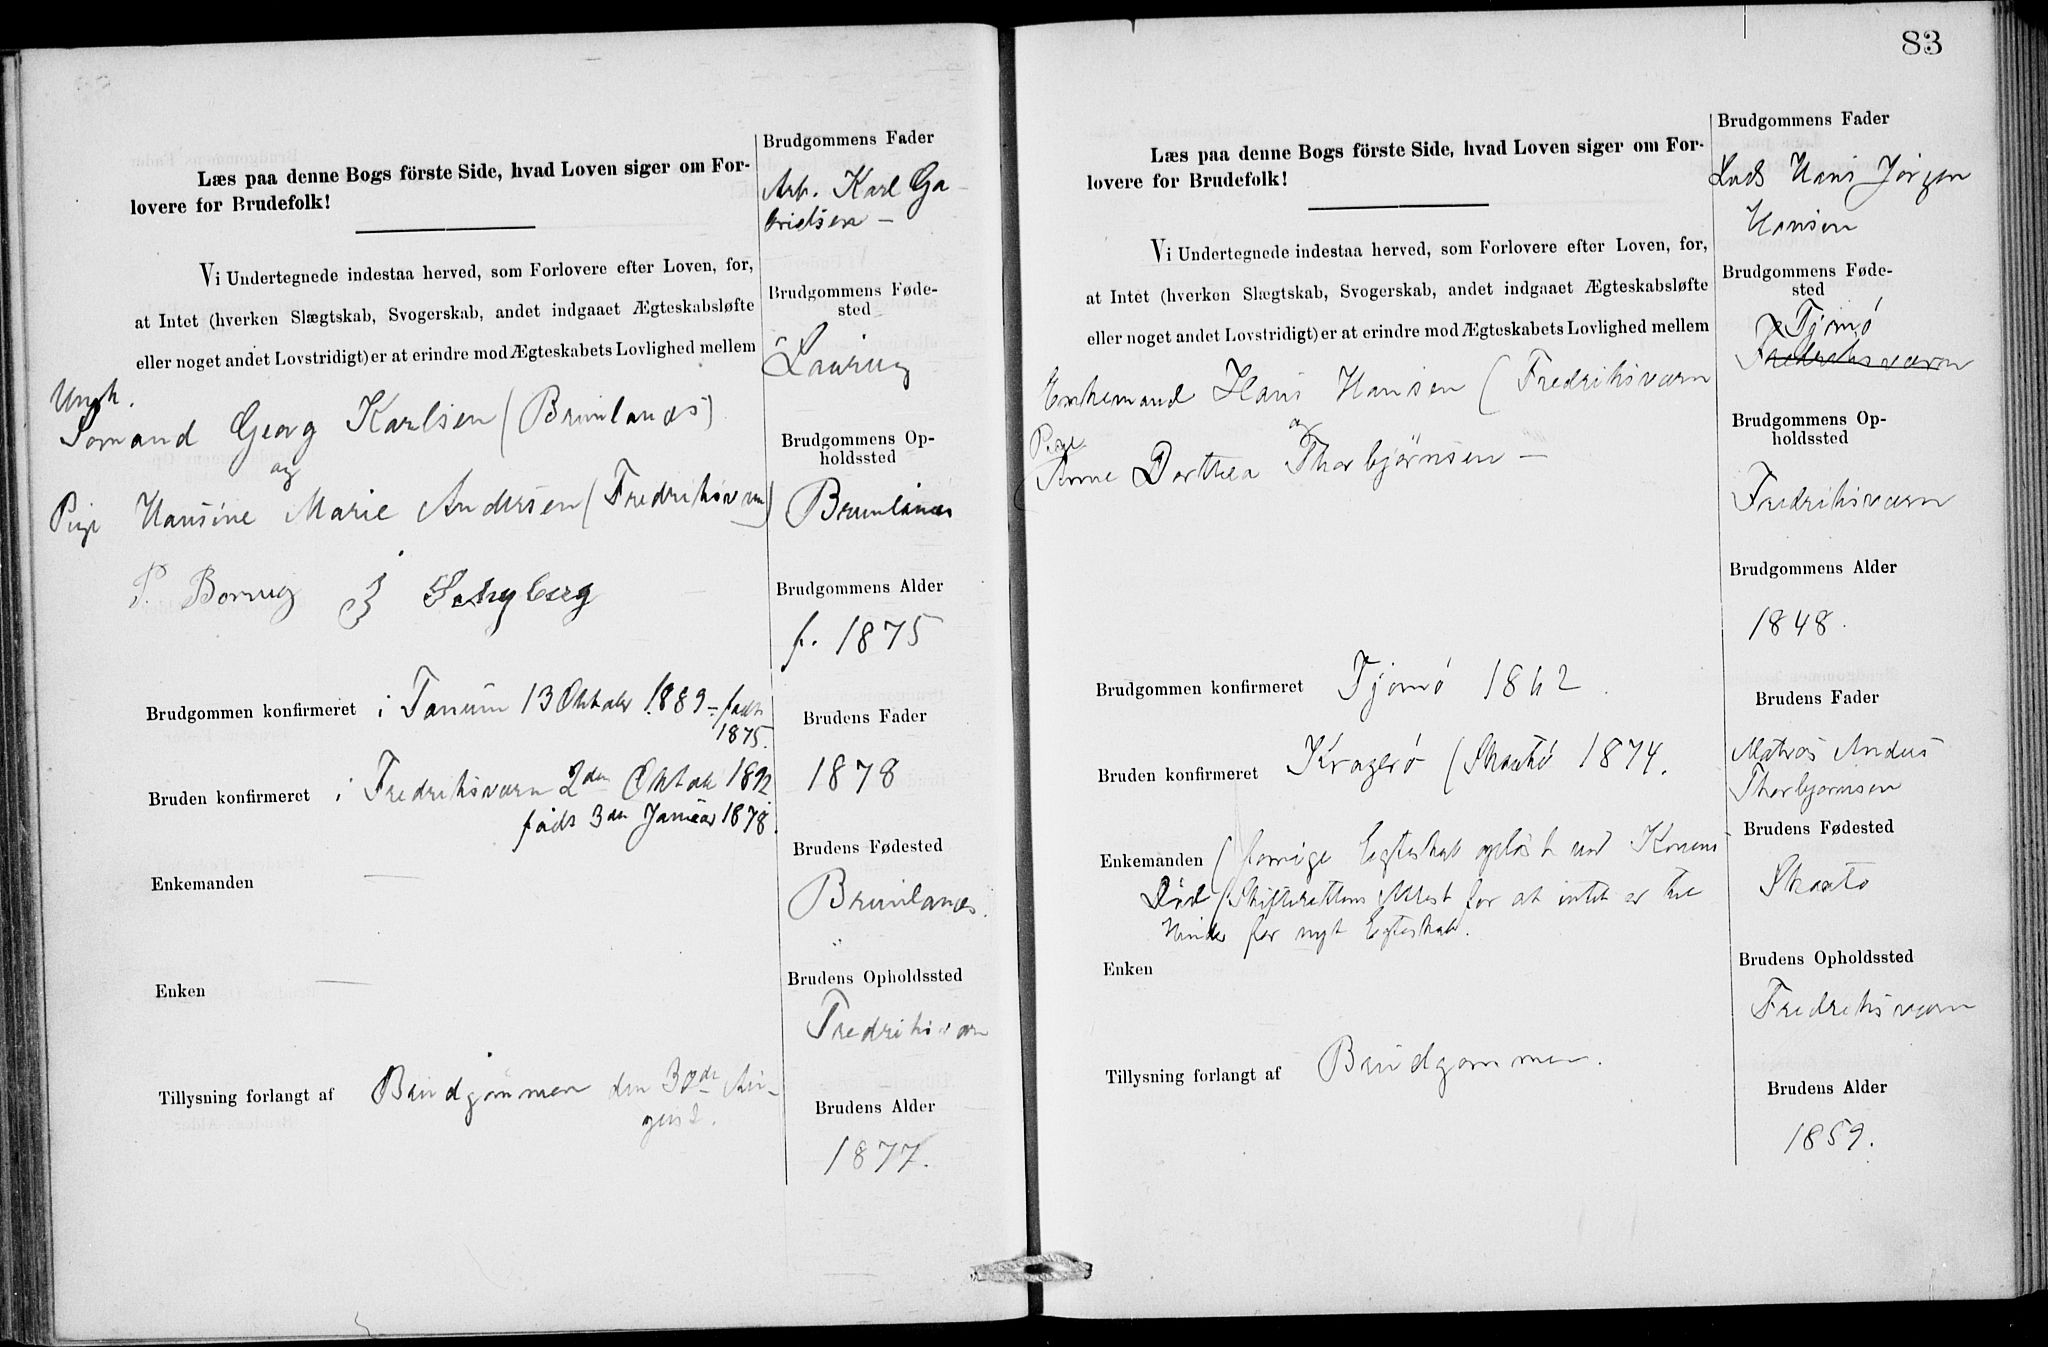 Læs paa denne Bogs förste Side, hvad Loven siger om For-
lovere for Brudefolk!
Vi Undertegnede indestaa herved, som Forlovere efter Loven, for,
at Intet (hverken Slægtskab, Svogerskab, andet indgaaet Ægteskabsløfte
eller noget andet Lovstridigt) er at erindre mod Ægteskabets Lovlighed mellem
Ungk.
Sømand Georg Karlsen (Brunlanæs)
og
Pige Hansine Marie Andersen (Fredriksværn)
P. Bornug Schyberg
Brudgommen konfirmeret i Tanum 13 Oktober 1889 - født
1875.
Bruden konfirmeret i Fredriksværn 2den Oktober 1892
født 3die Januar 1878.
Enkemanden —
Enken —
Tillysning forlangt af Brudgommen den 30de Au-
gust.
Brudgommens Fader
Arb. Karl Ga-
brielsen –
Brudgommens Føde-
sted
Laurvig
Brudgommens Op-
holdssted
Brunlanæs
Brudgommens Alder
f. 1875
Brudens Fader
1878
Brudens Fødested
Brunlanæs.
Brudens Opholdssted
Fredriksværn
Brudens Alder
1877.
83
Læs paa denne Bogs förste Side, hvad Loven siger om For-
lovere for Brudefolk!
Vi Undertegnede indestaa herved, som Forlovere efter Loven, for,
at Intet (hverken Slægtskab, Svogerskab, andet indgaaet Ægteskabsløfte
eller noget andet Lovstridigt) er at erindre mod Ægteskabets Lovlighed mellem
Enkemand Hans Hansen (Fredriksværn
og
Pige
Anne Dorthea Thorbjørnsen —
Brudgommen konfirmeret Tjømø 1862.
Bruden konfirmeret Kragerø (Skaatø 1874.
Enkemanden (forrige Egteskab opløst ved Konens
Død (Skifterettens Attest for at intet er til
Hinder for nyt Egteskab.
Enken
Tillysning forlangt af Brudgommen.
Brudgommens Fader
Lods Hans Jørgen
Hansen
Brudgommens Føde-
sted
Tjømø
Fredriksværn
Brudgommens Op-
holdssted
Fredriksværn
Brudgommens Alder
1848.
Brudens Fader
Matros Anders
Thorbjørnsen
Brudens Fødested
Skaatø
Brudens Opholdssted
Fredriksværn
Brudens Alder
1859.